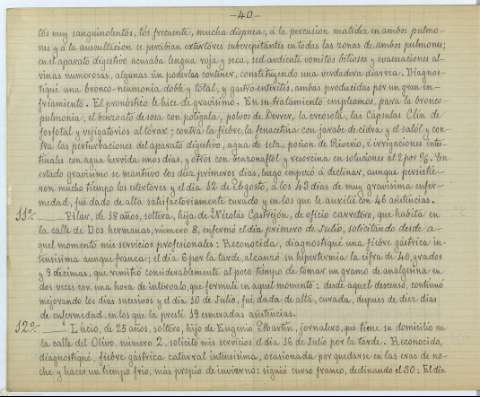 -40-
tós muy sanguinolentos, tós frecuente, mucha dispnea, á la percusion matidez en ambos pulmo-
nes y á la auscultación se percibian estertores subcrepitantes en todas las zonas de ambos pulmones;
en el aparato digestivo acusaba lengua roja y seca, sed ardiente vómitos biliosos y evacuaciones al-
vinas numerosas, algunas sin poderlas contener, constituyendo una verdadera diarrea. Diagnos-
tiqué una bronco-neumonía doble y total, y gastro-enteritis, ambas producidas por un gran en-
friamiento. El pronóstico le hice de gravísimo. En su tratamiento empleamos, para la bronco-
pulmonía, el benzoato de sosa con polígala, polvos de Dower, la creosota, las Cápsulas Clin de
fosfotal y vejigatorios al tórax; contra la fiebre, la fenacetina con jarabe de cidra y el salól y con-
tra las perturbaciones del aparato digestivo, agua de seltz, pocion de Riverio, é irrigaciones intes-
tinales con agua hervida unos dias, y otros con benzonaftol y resorcina en soluciones al 2 por %. En
estado gravísimo se mantuvo los diez primeros dias, luego empezó á declinar, aunque persistie-
ron mucho tiempo los estertores y el dia 12 de Agosto, á los 43 dias de muy gravísima enfer-
medad, fué dado de alta satisfactoriamente curado y en los que le auxilié con 46 asistencias.
11ª- Pilar, de 18 años, soltera, hija de Nicolás Castrejón, de oficio carretero, que habita en
la calle de Dos hermanas, número 8, enfermó el dia primero de Julio, solicitando desde a-
quel momento mis servicios profesionales: Reconocida, diagnostiqué una fiebre gástrica in-
tensísima aunque franca; el dia 6 por la tarde, alcanzó su hipertermia la cifra de 40, grados
y 3 décimas, que remitió considerablemente al poco tiempo de tomar un gramo de analgesina en
dos veces con una hora de intérvalo, que formulé en aquel momento: desde aquel descenso, continuó
mejorando los dias sucesivos y el dia 10 de Julio, fué dada de alta, curada, despues de diez dias
de enfermedad, en los que la presté 19 esmeradas asistencias.
12ª- Lucio, de 25 años, soltero, hijo de Eugenio Martin, jornalero, que tiene su domicilio en
la calle del Olivo número 2, solicitó mis servicios el dia 16 de Julio por la tarde. Reconocido,
diagnostiqué, fiebre gástrica catarral intensísima, ocasionada por quedarse en las eras de no-
che y hacer un tiempo frio, más propio de invierno: siguió curso franco, declinando el 20: El dia